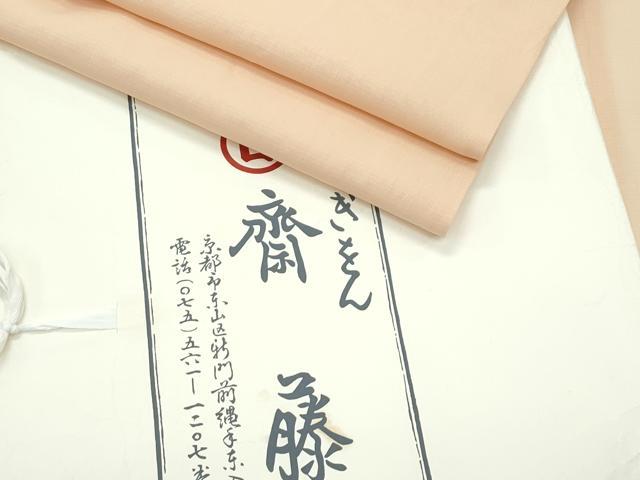 ぎをん
齋藤
京都市東山区新門前縄手東入
電話(〇七五)五六一―一二〇七